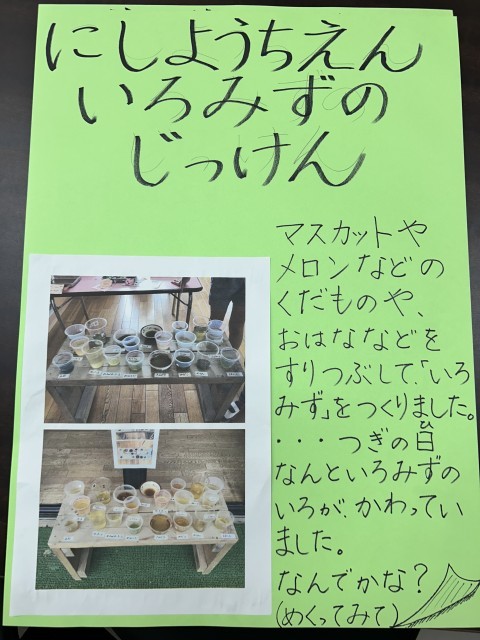 にしようちえん
いろみずの
じっけん
マスカットや
メロンなどの
くだものや、
おはななどを
すりつぶして、「いろ
みず」をつくりました。
・・・つぎの日
ひ
なんといろみずの
いろが、かわってい
ました。
なんでかな?
(めくってみて)